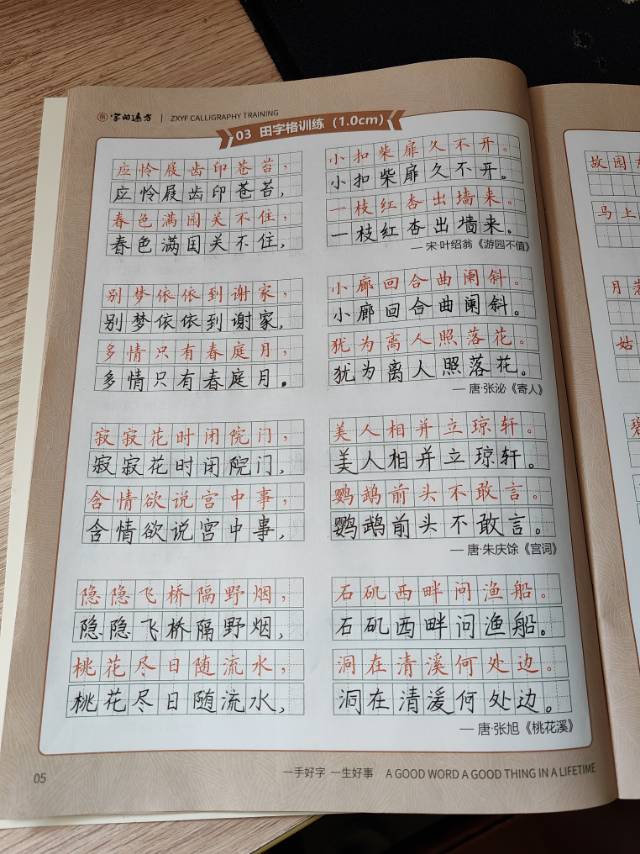 字的遍方 | ZXYF CALLIGRAPHY TRAINING
03 田字格训练（1.0cm）
应怜屐齿印苍苔，
应怜屐齿印苍苔，
春色满园关不住，
春色满园关不住，
小扣柴扉久不开。
小扣柴扉久不开。
一枝红杏出墙来。
一枝红杏出墙来。
— 宋·叶绍翁《游园不值》
别梦依依到谢家，
别梦依依到谢家，
多情只有春庭月，
多情只有春庭月。
小廊回合曲阑斜。
小廊回合曲阑斜。
犹为离人照落花。
犹为离人照落花。
— 唐·张泌《寄人》
寂寂花时闭院门，
寂寂花时闭院门，
含情欲说宫中事，
含情欲说宫中事，
美人相并立琼轩。
美人相并立琼轩。
鹦鹉前头不敢言。
鹦鹉前头不敢言。
— 唐·朱庆馀《宫词》
隐隐飞桥隔野烟，
隐隐飞桥隔野烟，
桃花尽日随流水，
桃花尽日随流水，
石矶西畔问渔船。
石矶西畔问渔船。
洞在清溪何处边。
洞在清溪何处边。
— 唐·张旭《桃花溪》
05
一手好字 一生好事 A GOOD WORD A GOOD THING IN A LIFETIME
故园
马上
月
姑